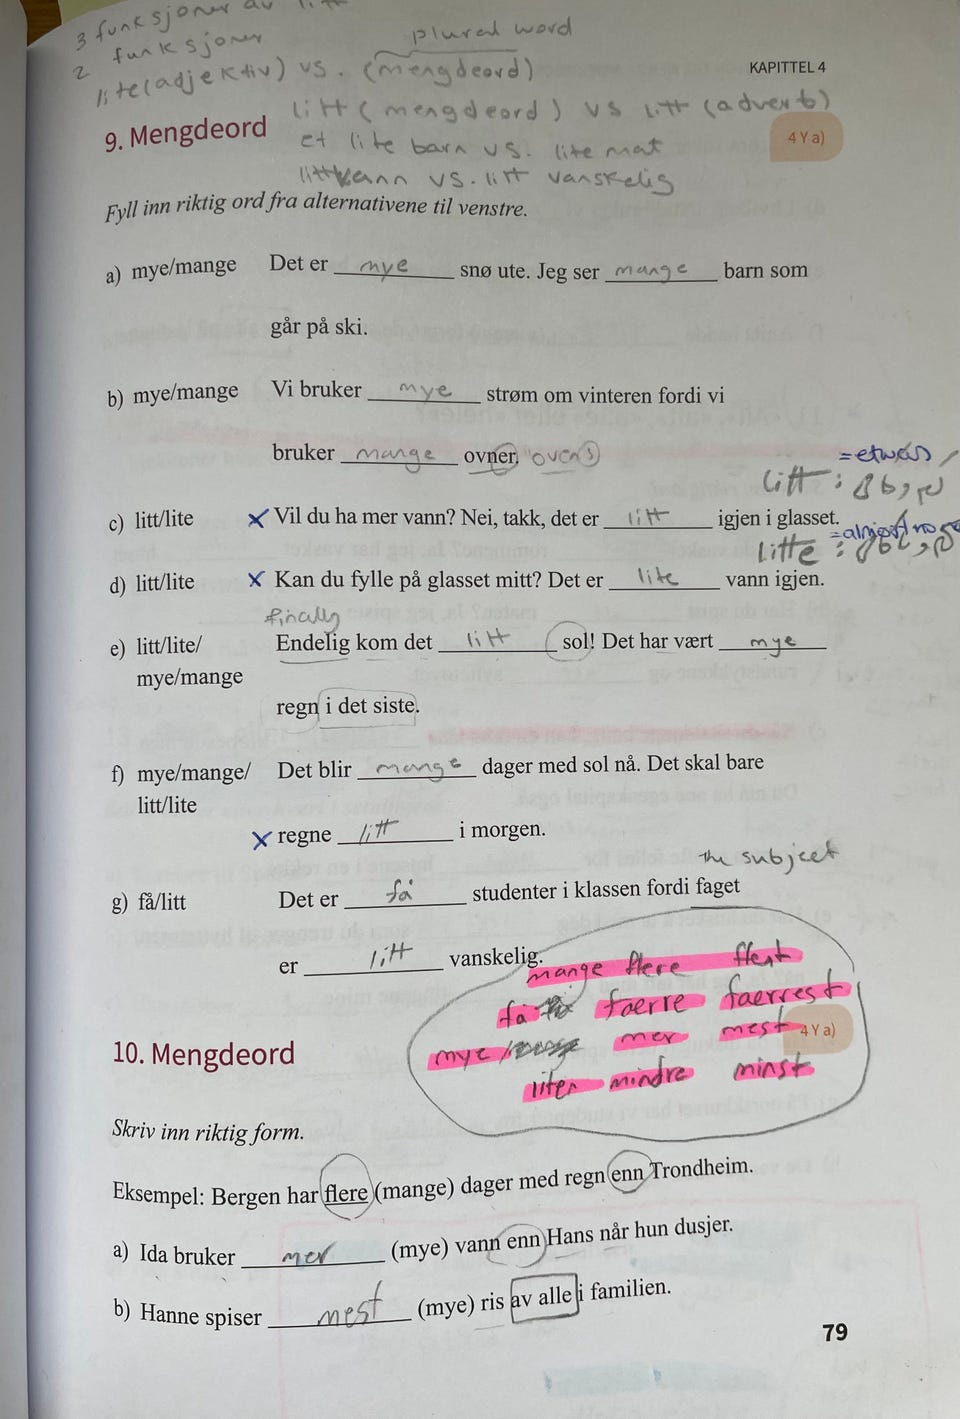 3 funksjoner av litt
2 funksjoner
lite (adjektiv) vs. (mengdeord)
plural word
KAPITTEL 4
litt (mengdeord) vs litt (adverb)
9. Mengdeord
et lite barn vs. lite mat
4 Y a)
litt vann vs. litt vanskelig
Fyll inn riktig ord fra alternativene til venstre.
a) mye/mange Det er mye snø ute. Jeg ser mange barn som
går på ski.
b) mye/mange Vi bruker mye strøm om vinteren fordi vi
bruker mange ovner. "ovens"
=etwas
litt :
c) litt/lite x Vil du ha mer vann? Nei, takk, det er litt igjen i glasset.
litte :
d) litt/lite x Kan du fylle på glasset mitt? Det er lite vann igjen.
finally
e) litt/lite/ Endelig kom det litt sol! Det har vært mye
mye/mange
regn i det siste.
f) mye/mange/ Det blir mange dager med sol nå. Det skal bare
litt/lite
x regne litt i morgen.
the subject
g) få/litt Det er få studenter i klassen fordi faget
er litt vanskelig.
mange flere flest
få faerre faerrest
mye mer mest 4 Y a)
liten mindre minst
10. Mengdeord
Skriv inn riktig form.
Eksempel: Bergen har flere (mange) dager med regn enn Trondheim.
a) Ida bruker mer (mye) vann enn Hans når hun dusjer.
b) Hanne spiser mest (mye) ris av alle i familien.
79